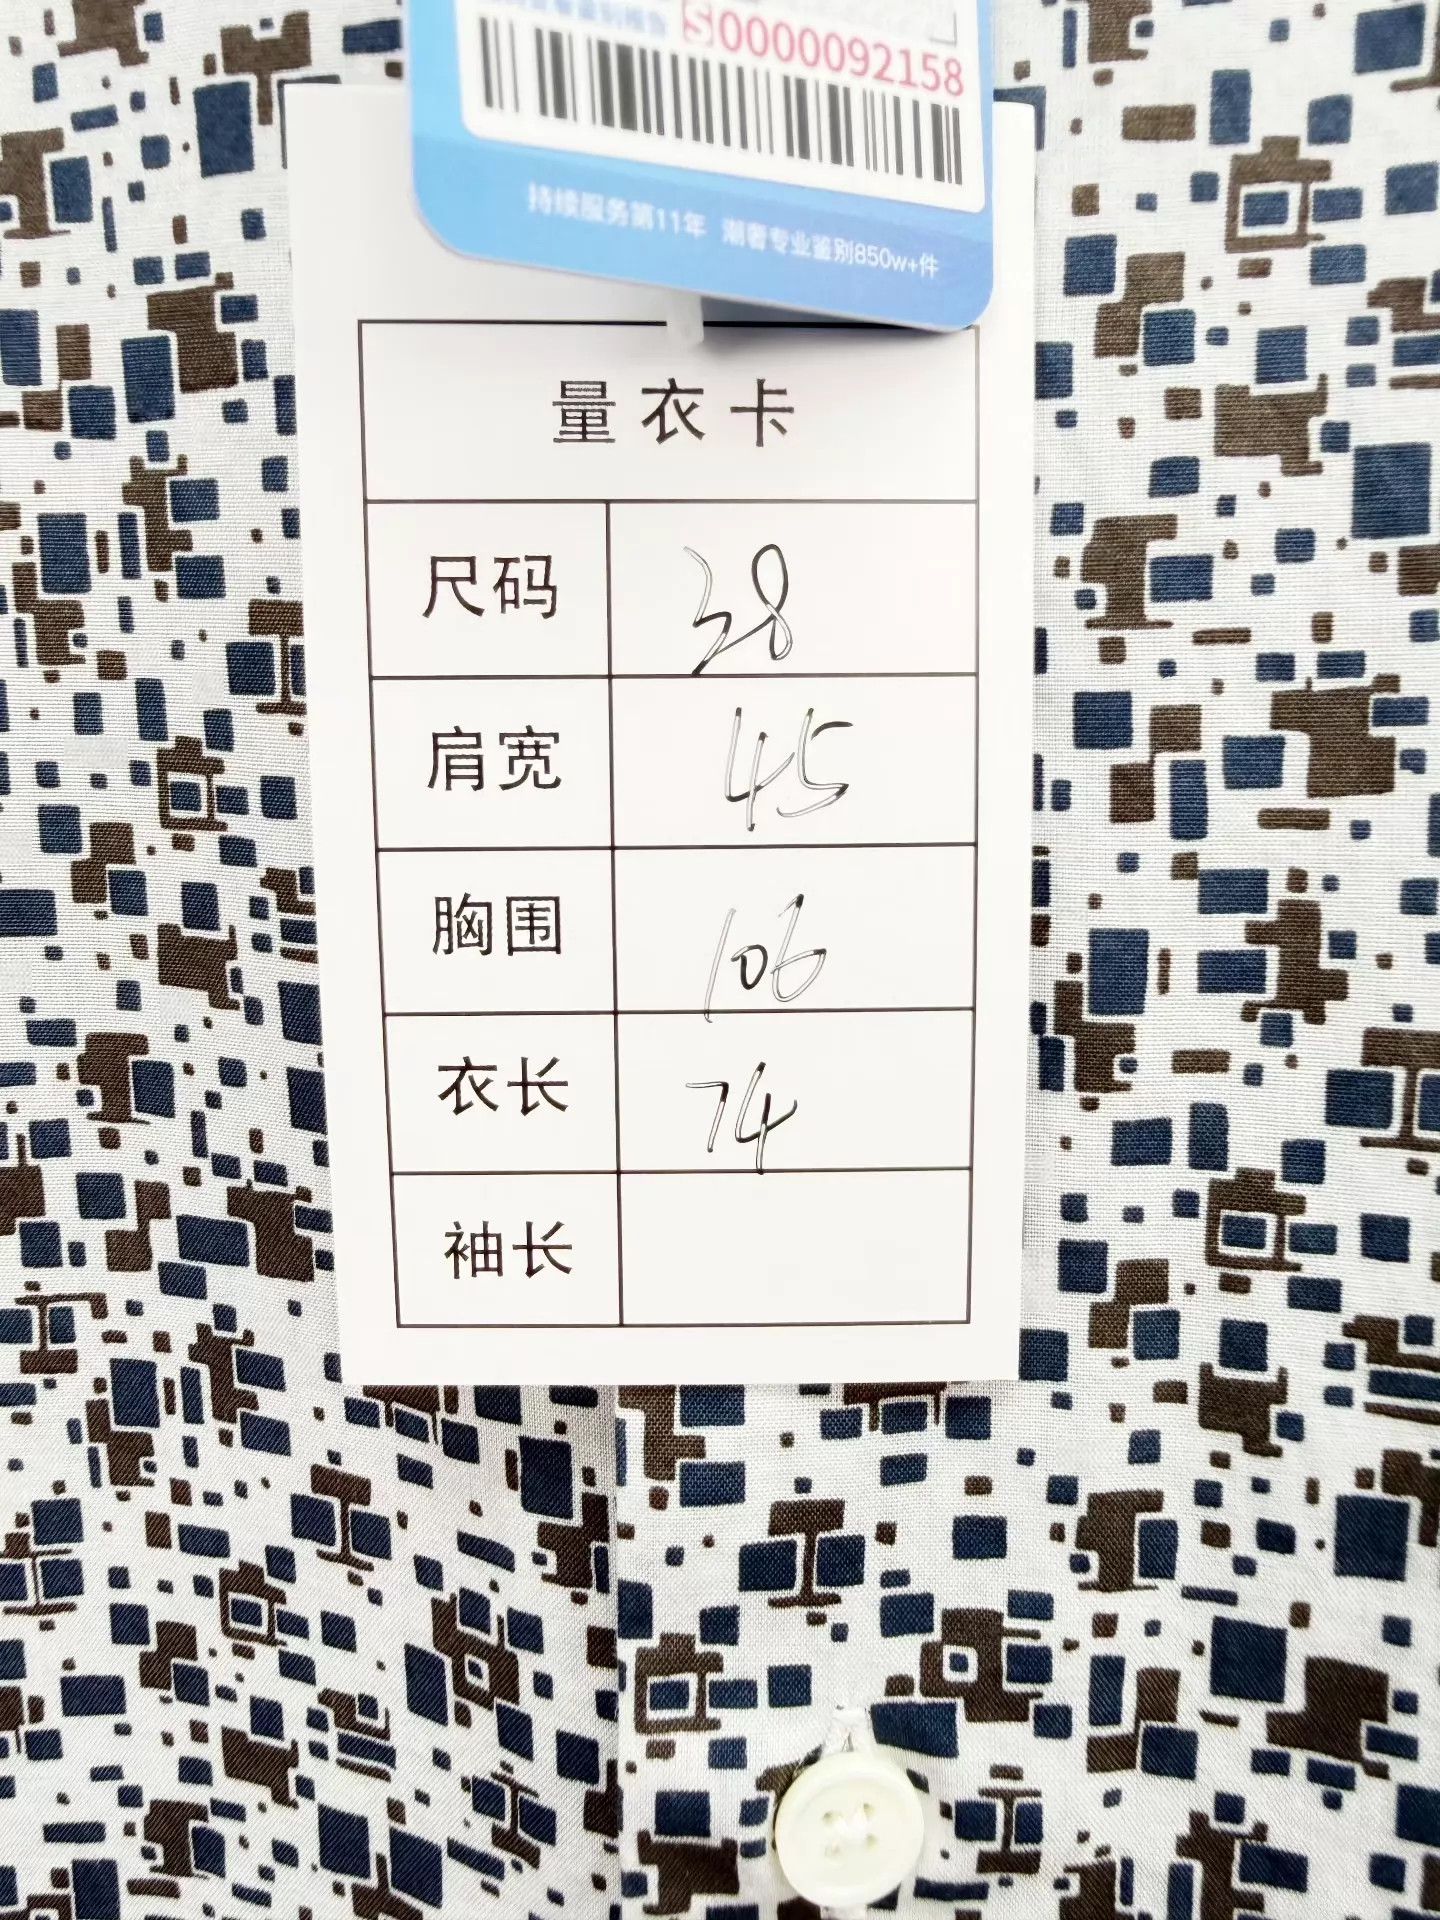 S0000092158
持续服务第11年 潮奢专业鉴别850w+件
量衣卡
尺码 38
肩宽 45
胸围 106
衣长 74
袖长